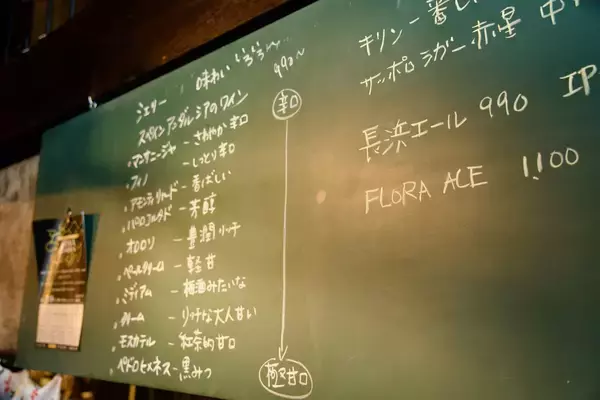 シェリー 味わい いろいろ〜 990〜
スペイン アンダルシアのワイン
・マンサニージャ - さわやか辛口
・フィノ - しっとり辛口
・アモンティリャード - 香ばしい
・パロコルタド - 芳醇
・オロロソ - 豊潤リッチ
・ペールクリーム - 軽甘
・ミディアム - 梅酒みたいな
・クリーム - リッチな大人甘い
・モスカテル - 紅茶的甘口
・ペドロヒメネス - 黒みつ
辛口
極甘口
キリン 一番し
サッポロ ラガー 赤星 中
長浜エール 990 IP
FLORA ACE 1,100